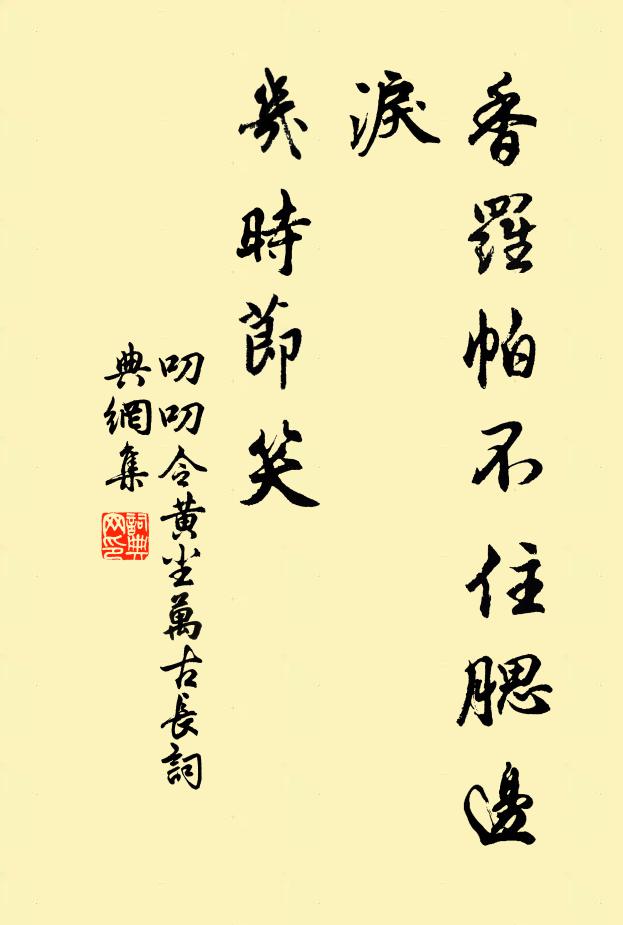 香羅帕不住腮邊
淚
幾時節笑
叨叨令黃尘萬古長詞
典網集
詞典
网印